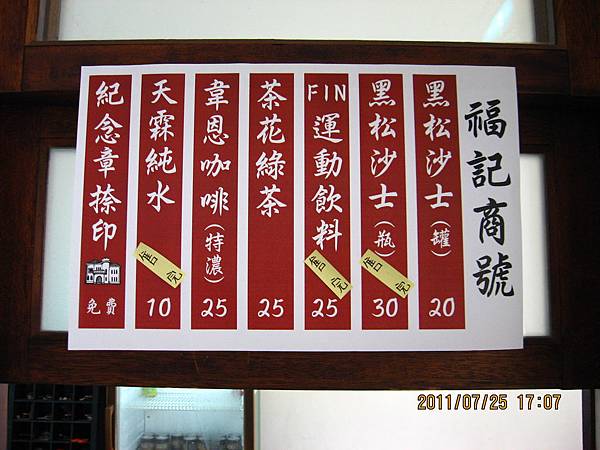 福記商號
黑松沙士(罐) 20
黑松沙士(瓶) 30
售完
FIN運動飲料 25
售完
茶花綠茶 25
韋恩咖啡(特濃) 25
天霖純水 10
售完
紀念章捺印 免費
2011/07/25 17:07